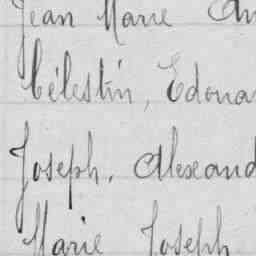 Jean Marie An
Célestin, Edoua
Joseph, Alexand
Marie Joseph